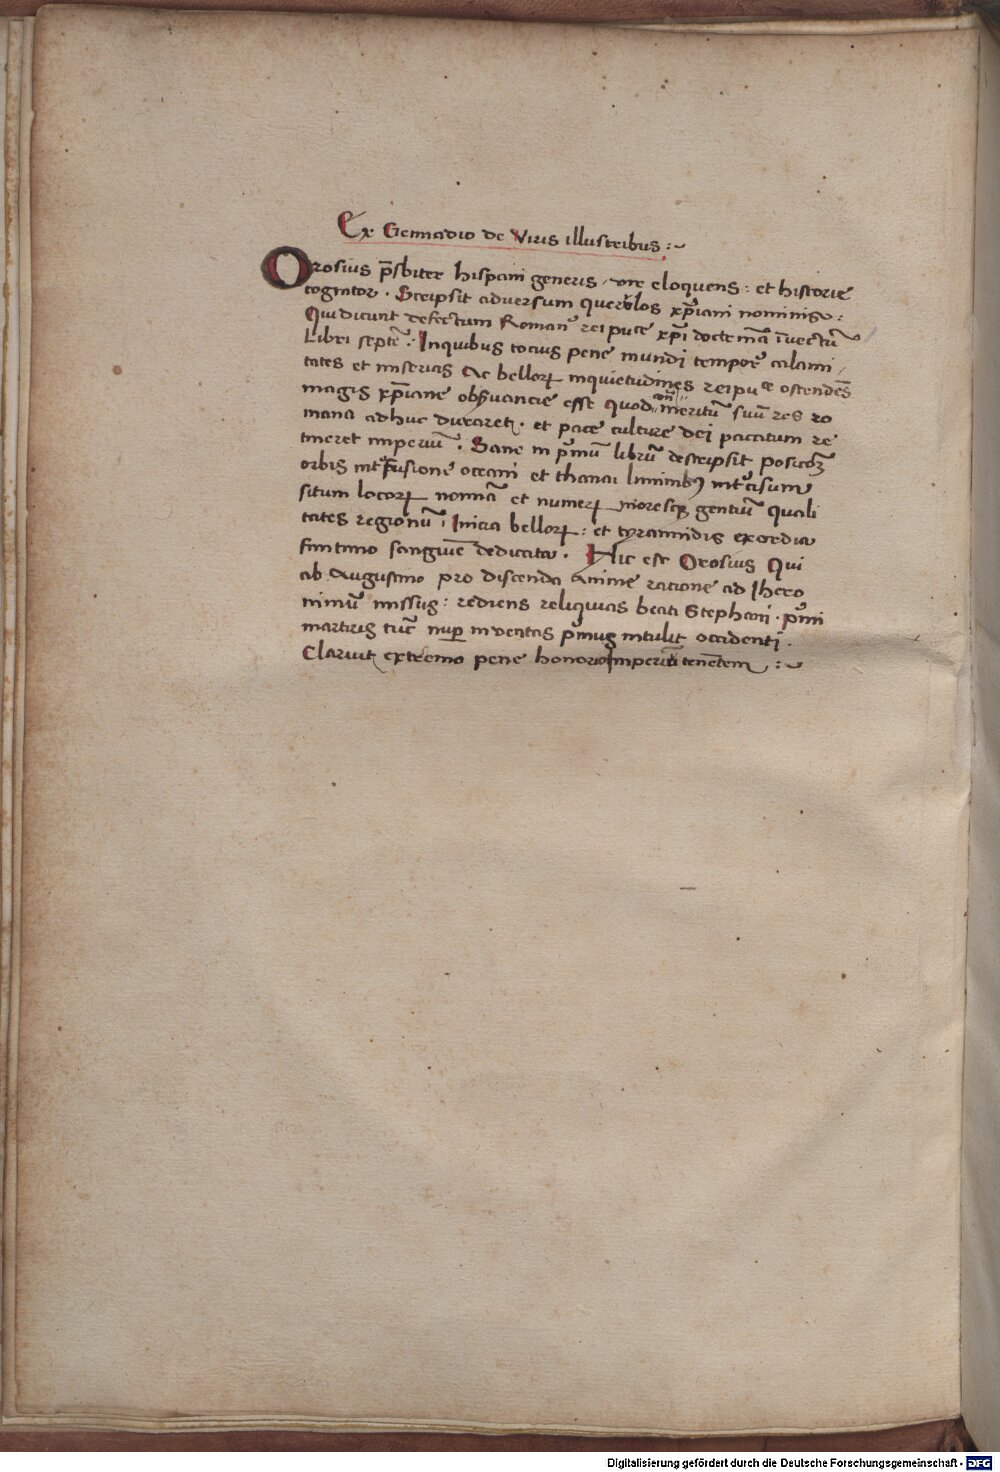 Ex Gennadio de Viris illustribus :~
Orosius p̅sbiter hispani generis, vir eloquens : et historie
cognitor . Scripsit adversum querulos xp̅iani nominis :
Qui dicunt defectum Roman᷒ rei puce xp̅i doctrina̅ i̅vectu̅
Libri septe̅ : Inquibus tocius pene mundi tempor᷒ calami,
tates et miserias Ac bellorꝝ inquietudines rei puce ostende̅s
magis xp̅iane obs̅vancie esse quod meritu̅ suu̅ res ro
mana adhuc duraret . et pace culture dei paccatum re
tineret imperiu̅ . Sane in p᷒mu̅ libru̅ descripsit posico̅ꝫ
orbis int᷒fusione oceani et thanai liminibꝯ int᷒cisum
situm locorꝝ nomina̅ et numerꝝ moresqꝫ gentiu̅ quali
tates regionu̅ : Inicia bellorꝝ : et tyrannidis exordia
finitimo sanguine̅ dedicata . Hic est Orosius Qui
ab Augustino pro discenda Anime racione ad Ihero
nimu̅ missus : rediens reliquias beati Stephani . p᷒mi
martiris tu̅c nup̱ inventas p᷒mus intulit occidenti .
Claruit extremo pene honorio Imperiu̅ tene̅tem :~
Digitalisierung gefördert durch die Deutsche Forschungsgemeinschaft - DFG